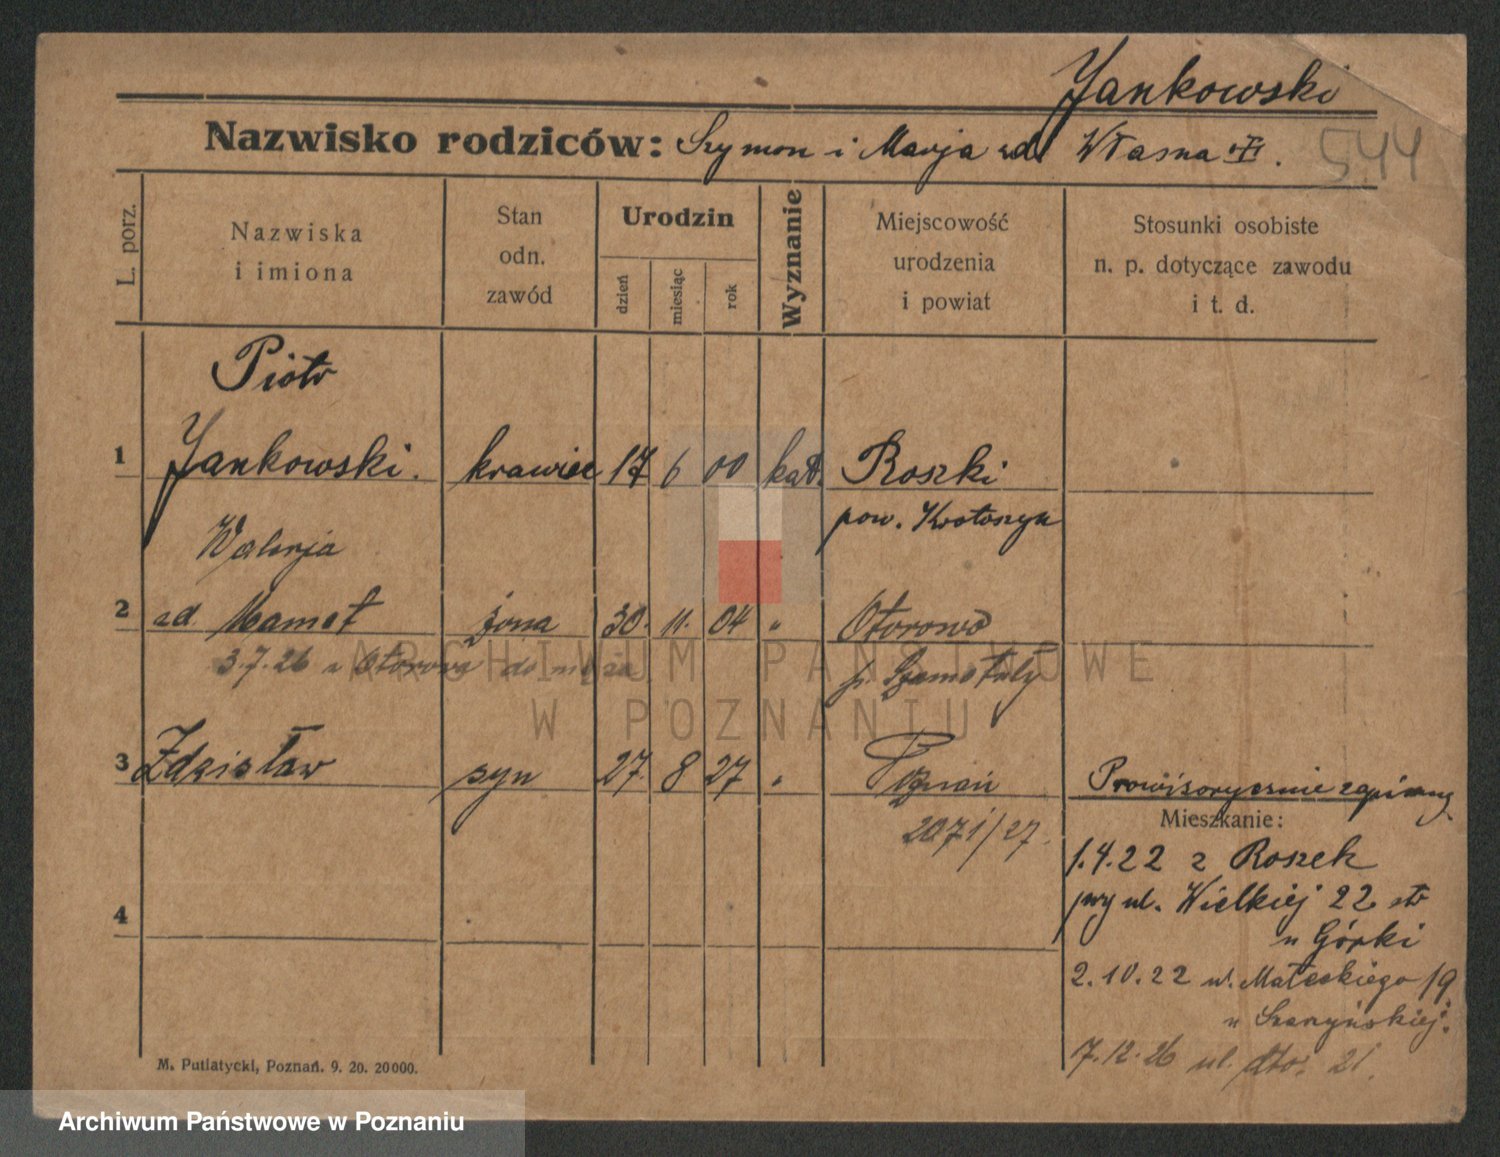 Jankowski
Nazwisko rodziców: Szymon i Marja zd Własna
544
L. porz.
Nazwiska i imiona
Stan odn. zawód
Urodzin
dzień
miesiąc
rok
Wyznanie
Miejscowość urodzenia i powiat
Stosunki osobiste n. p. dotyczące zawodu i t. d.
Piotr
1 Jankowski. krawiec 17 6 00 kat. Roszki
pow. Krotoszyn
Walerja
2 zd. Mamet żona 30. 11. 04 " Otorowo
3.7.26 z Otorowa do męża
p. Szamotuły
3 Zdzisław syn 27. 8 27 " Poznań
2071/27.
Prowizorycznie zapisany
Mieszkanie:
1.4.22 z Roszek
przy ul. Wielkiej 22 ptr
u Górki
4
2.10.22 ul. Małeckiego 19
u
7.12.26 ul. 21.
M. Putiatycki, Poznań. 9. 20. 20000.
ARCHIWUM PAŃSTWOWE
W POZNANIU
Archiwum Państwowe w Poznaniu